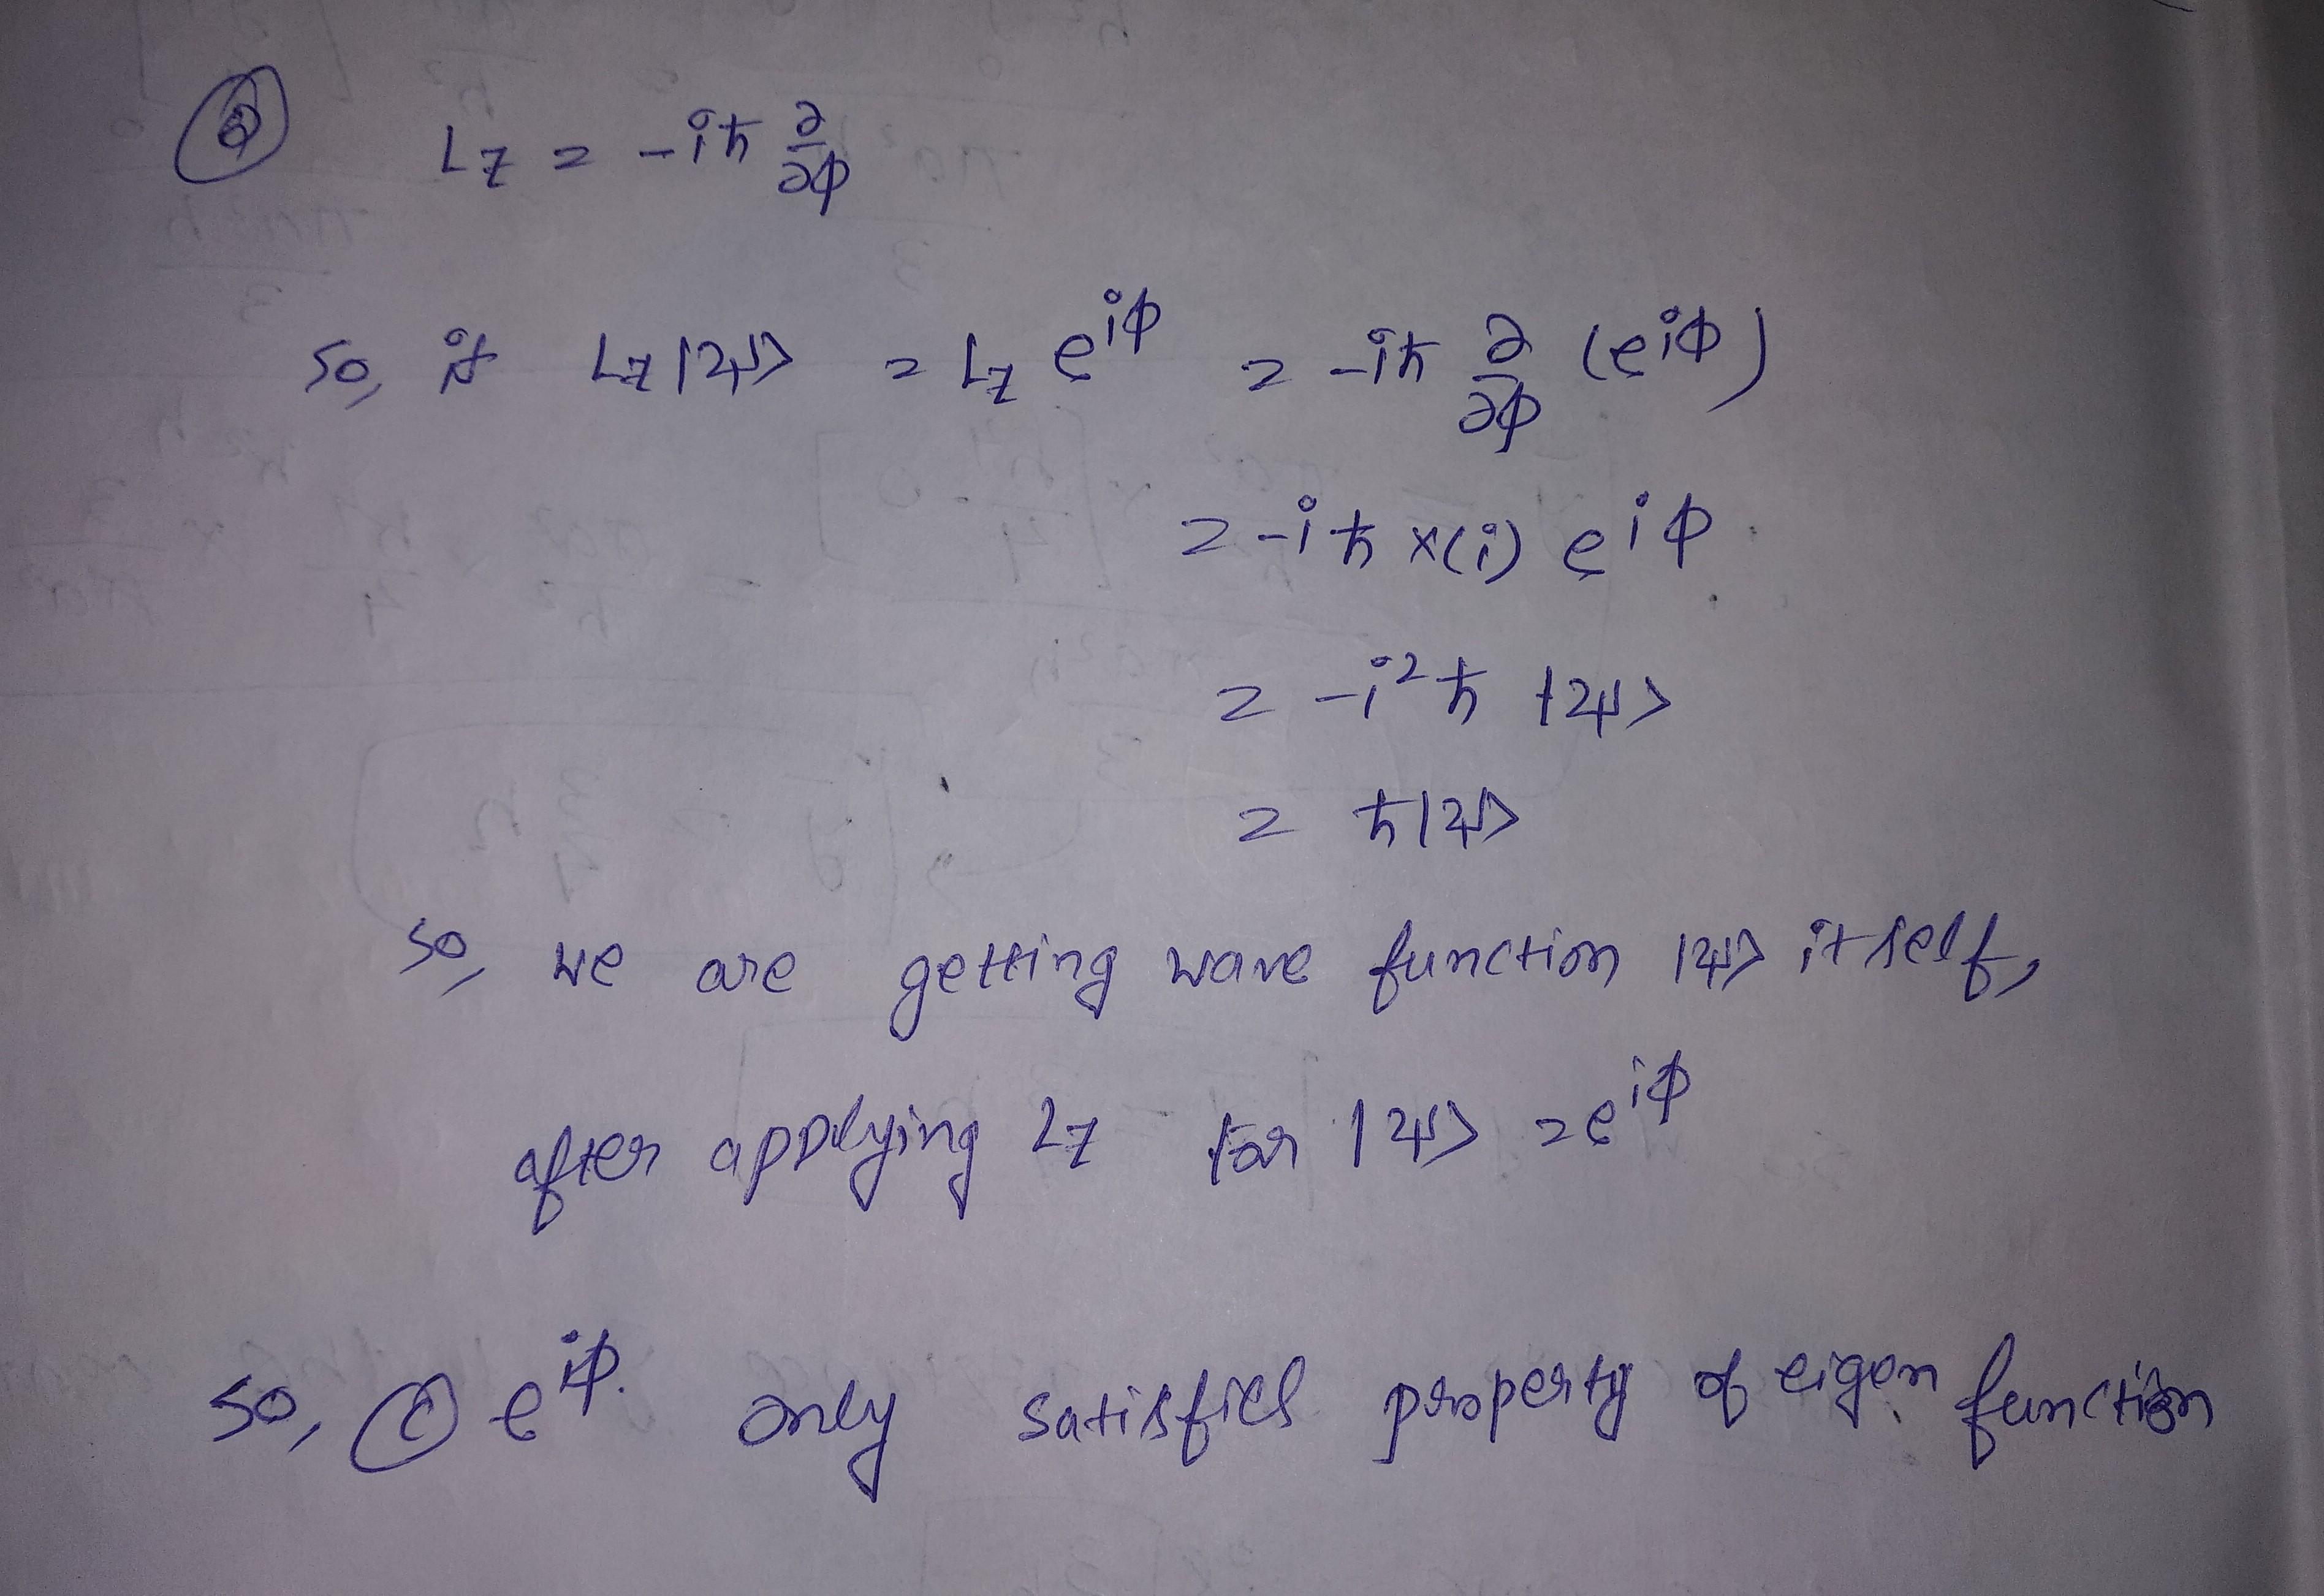 Q L_z = -iħ ∂/∂φ
So, if L_z |ψ> = L_z e^{iφ} = -iħ ∂/∂φ (e^{iφ})
= -iħ x(i) e^{iφ}
= -i²ħ |ψ>
= ħ|ψ>
So, we are getting wave function |ψ> itself,
after applying L_z for |ψ> = e^{iφ}
So, (c) e^{iφ}. only satisfies property of eigen function